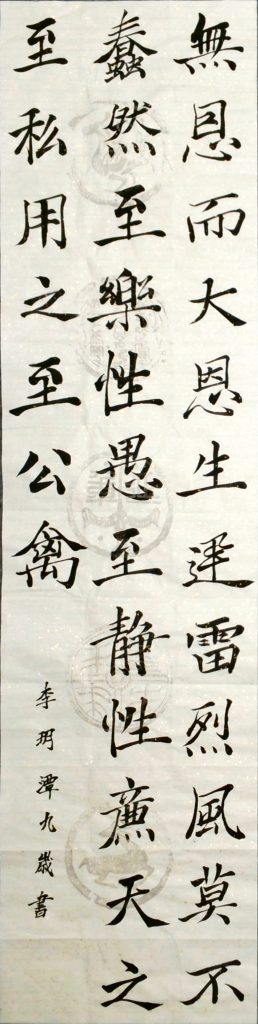 無恩而大恩生迅雷烈風莫不
蠢然至樂性愚至静性廉天之
至私用之至公禽
李玥潭九歲書